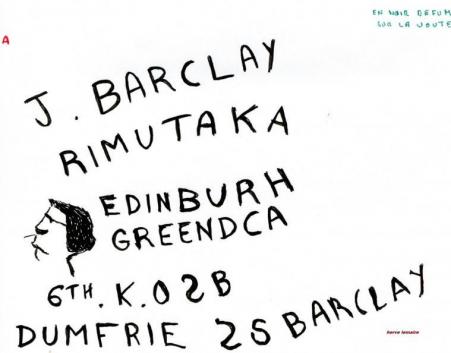 EN NOIR
SUR LA JOUTE
A
J. BARCLAY
RIMUTAKA
EDINBURH
GREENDCA
6TH. K. O 2 B
DUMFRIE 2S BARCLAY
herve lemaire